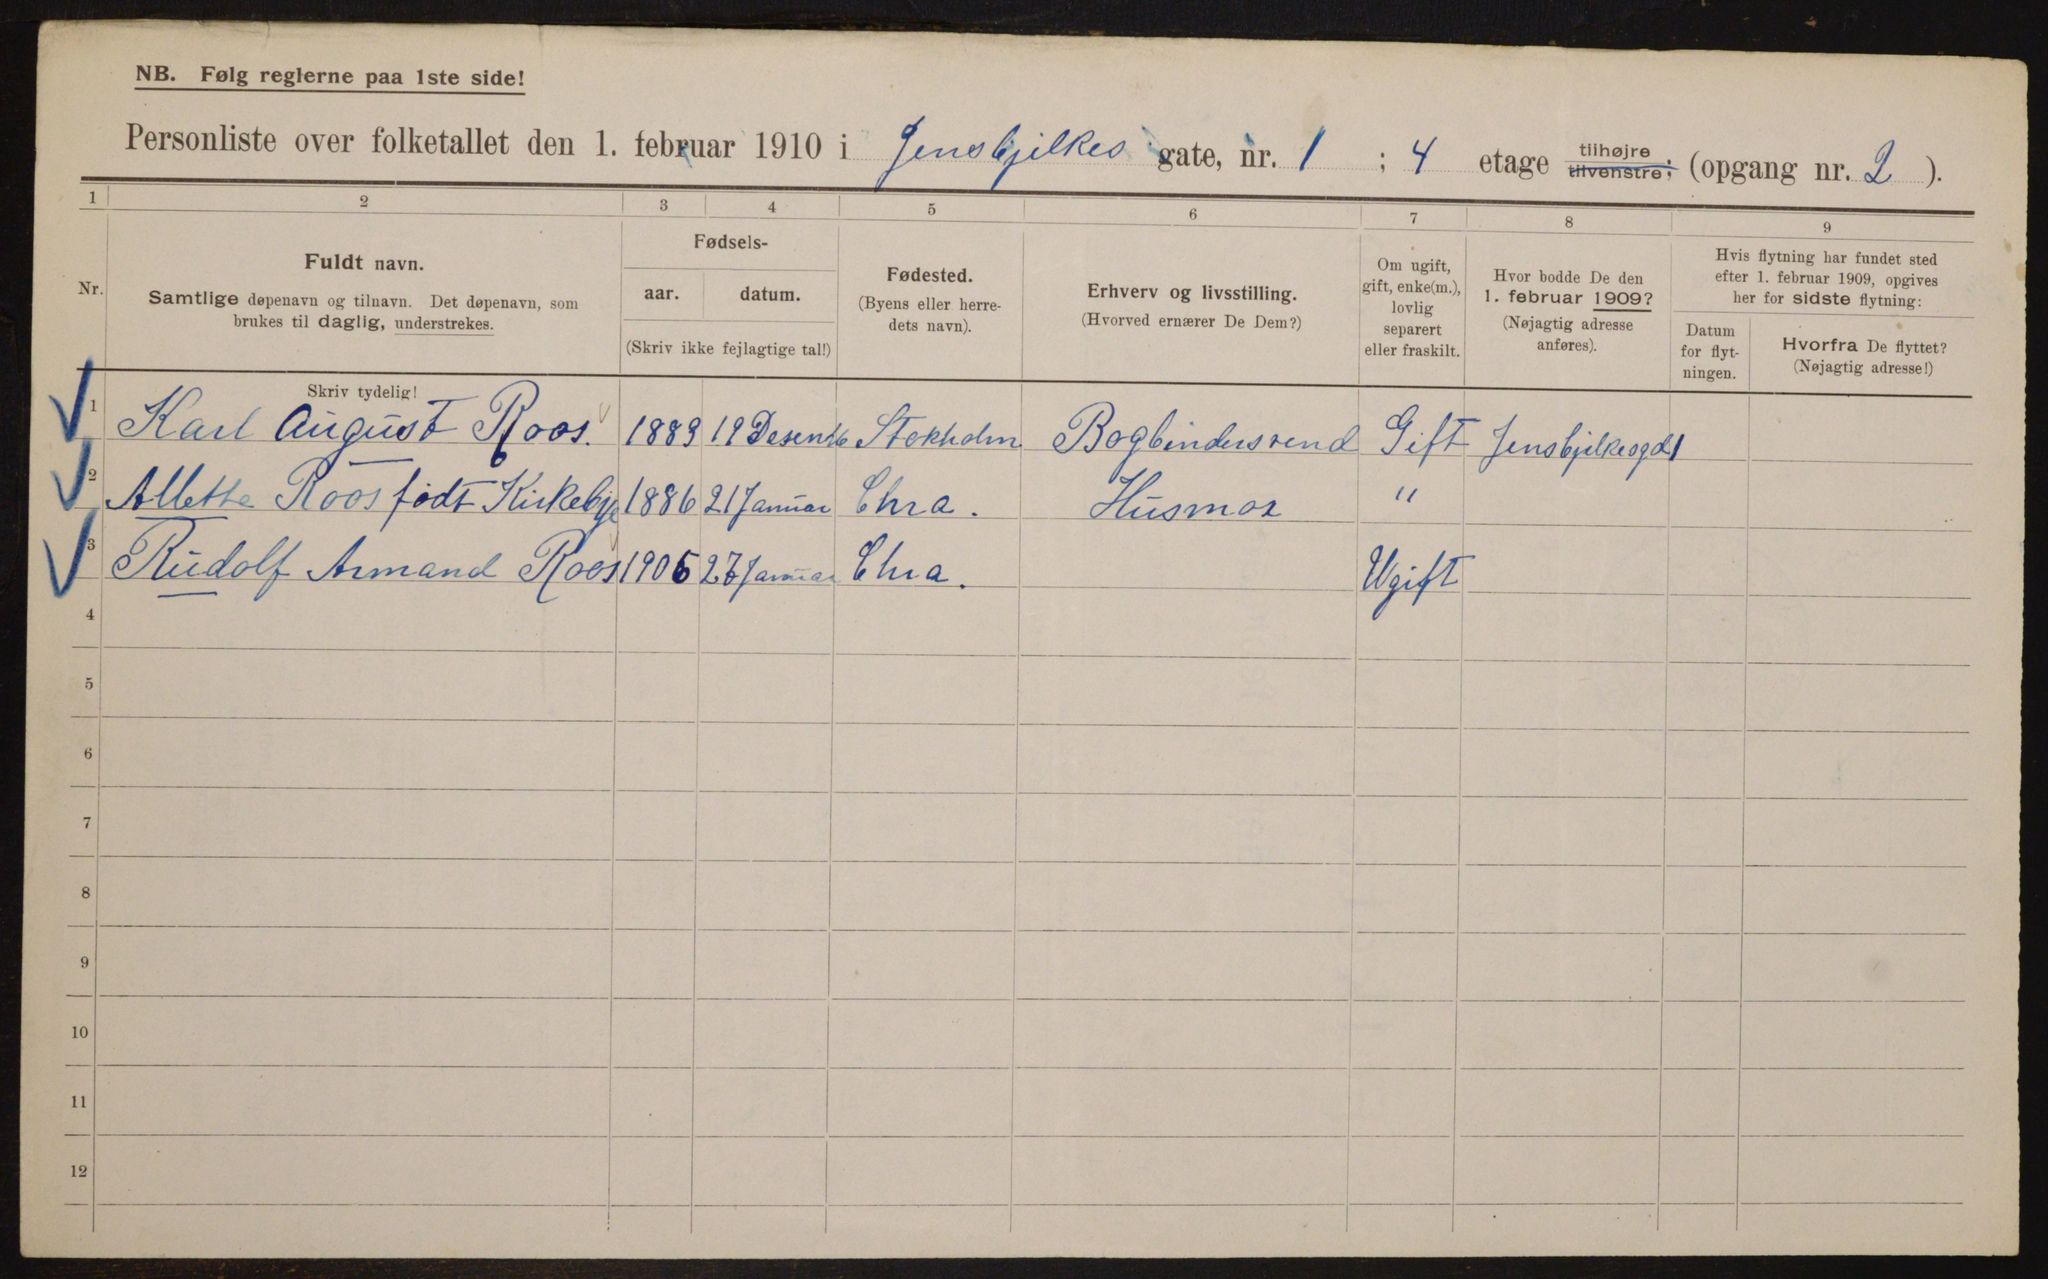 NB. Følg reglerne paa 1ste side!
Personliste over folketallet den 1. februar 1910 i Jensbjelkes gate, nr. 1 ; 4 etage tilhøjre, tilvenstre; (opgang nr. 2 ).
1 2 3 4 5 6 7 8 9
Nr.
Fuldt navn.
Samtlige døpenavn og tilnavn. Det døpenavn, som
brukes til daglig, understrekes.
Skriv tydelig!
Fødsels-
aar. datum.
(Skriv ikke fejlagtige tal!)
Fødested.
(Byens eller herre-
dets navn).
Erhverv og livsstilling.
(Hvorved ernærer De Dem?)
Om ugift,
gift, enke(m.),
lovlig
separert
eller fraskilt.
Hvor bodde De den
1. februar 1909?
(Nøjagtig adresse
anføres).
Hvis flytning har fundet sted
efter 1. februar 1909, opgives
her for sidste flytning:
Datum
for flyt-
ningen.
Hvorfra De flyttet?
(Nøjagtig adresse!)
1 Karl August Roos. 1889 19 Desemb Stokholm Bogbindersvend Gift Jensbjelkesgd 1
2 Allette Roos født Kirkebye 1886 21 Januar Chra. Husmor "
3 Rudolf Armand Roos 1906 Januar Chra. Ugift
4
5
6
7
8
9
10
11
12